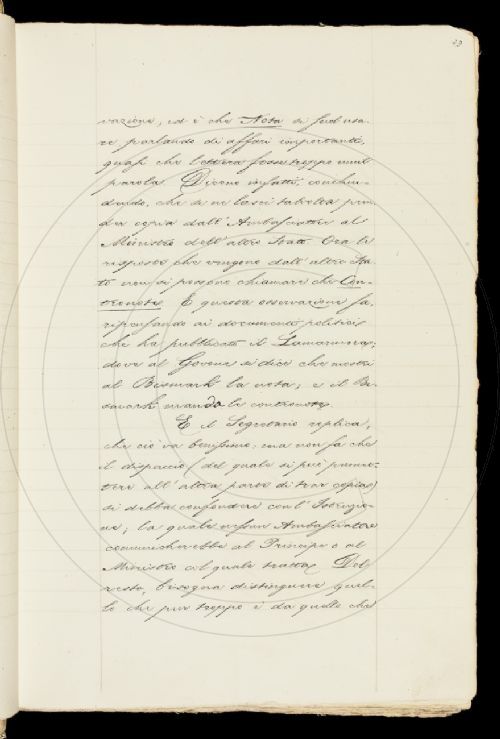 29
vazione, ed è che Nota si suol usa-
re parlando di affari importanti,
quasi che lettera fosse troppo umil
parola. Dicono infatti, conchiu-
dendo, che se ne lasci talvolta pren-
der copia dall' Ambasciatore al
Ministro dell' altro Stato. Ora le
risposte che vengono dall' altro Sta-
to non si possono chiamare che Con-
tronote. E questa osservazione fa,
ripensando ai documenti politici
che ha pubblicato il Lamarmora;
dove al Govone si dice che mostri
al Bismark la nota; e il Bi-
smark manda la contronota.
E il Segretario replica,
che ciò va benissimo; ma non sa che
il dispaccio (del quale si può permet-
tere all' altra parte di trar copia)
si debba confondere con l' Istruzio-
ne; la quale nessun Ambasciatore
comunicherebbe al Principe o al
Ministro col quale tratta. Del
resto, bisogna distinguere quel-
lo che pur troppo è da quello che